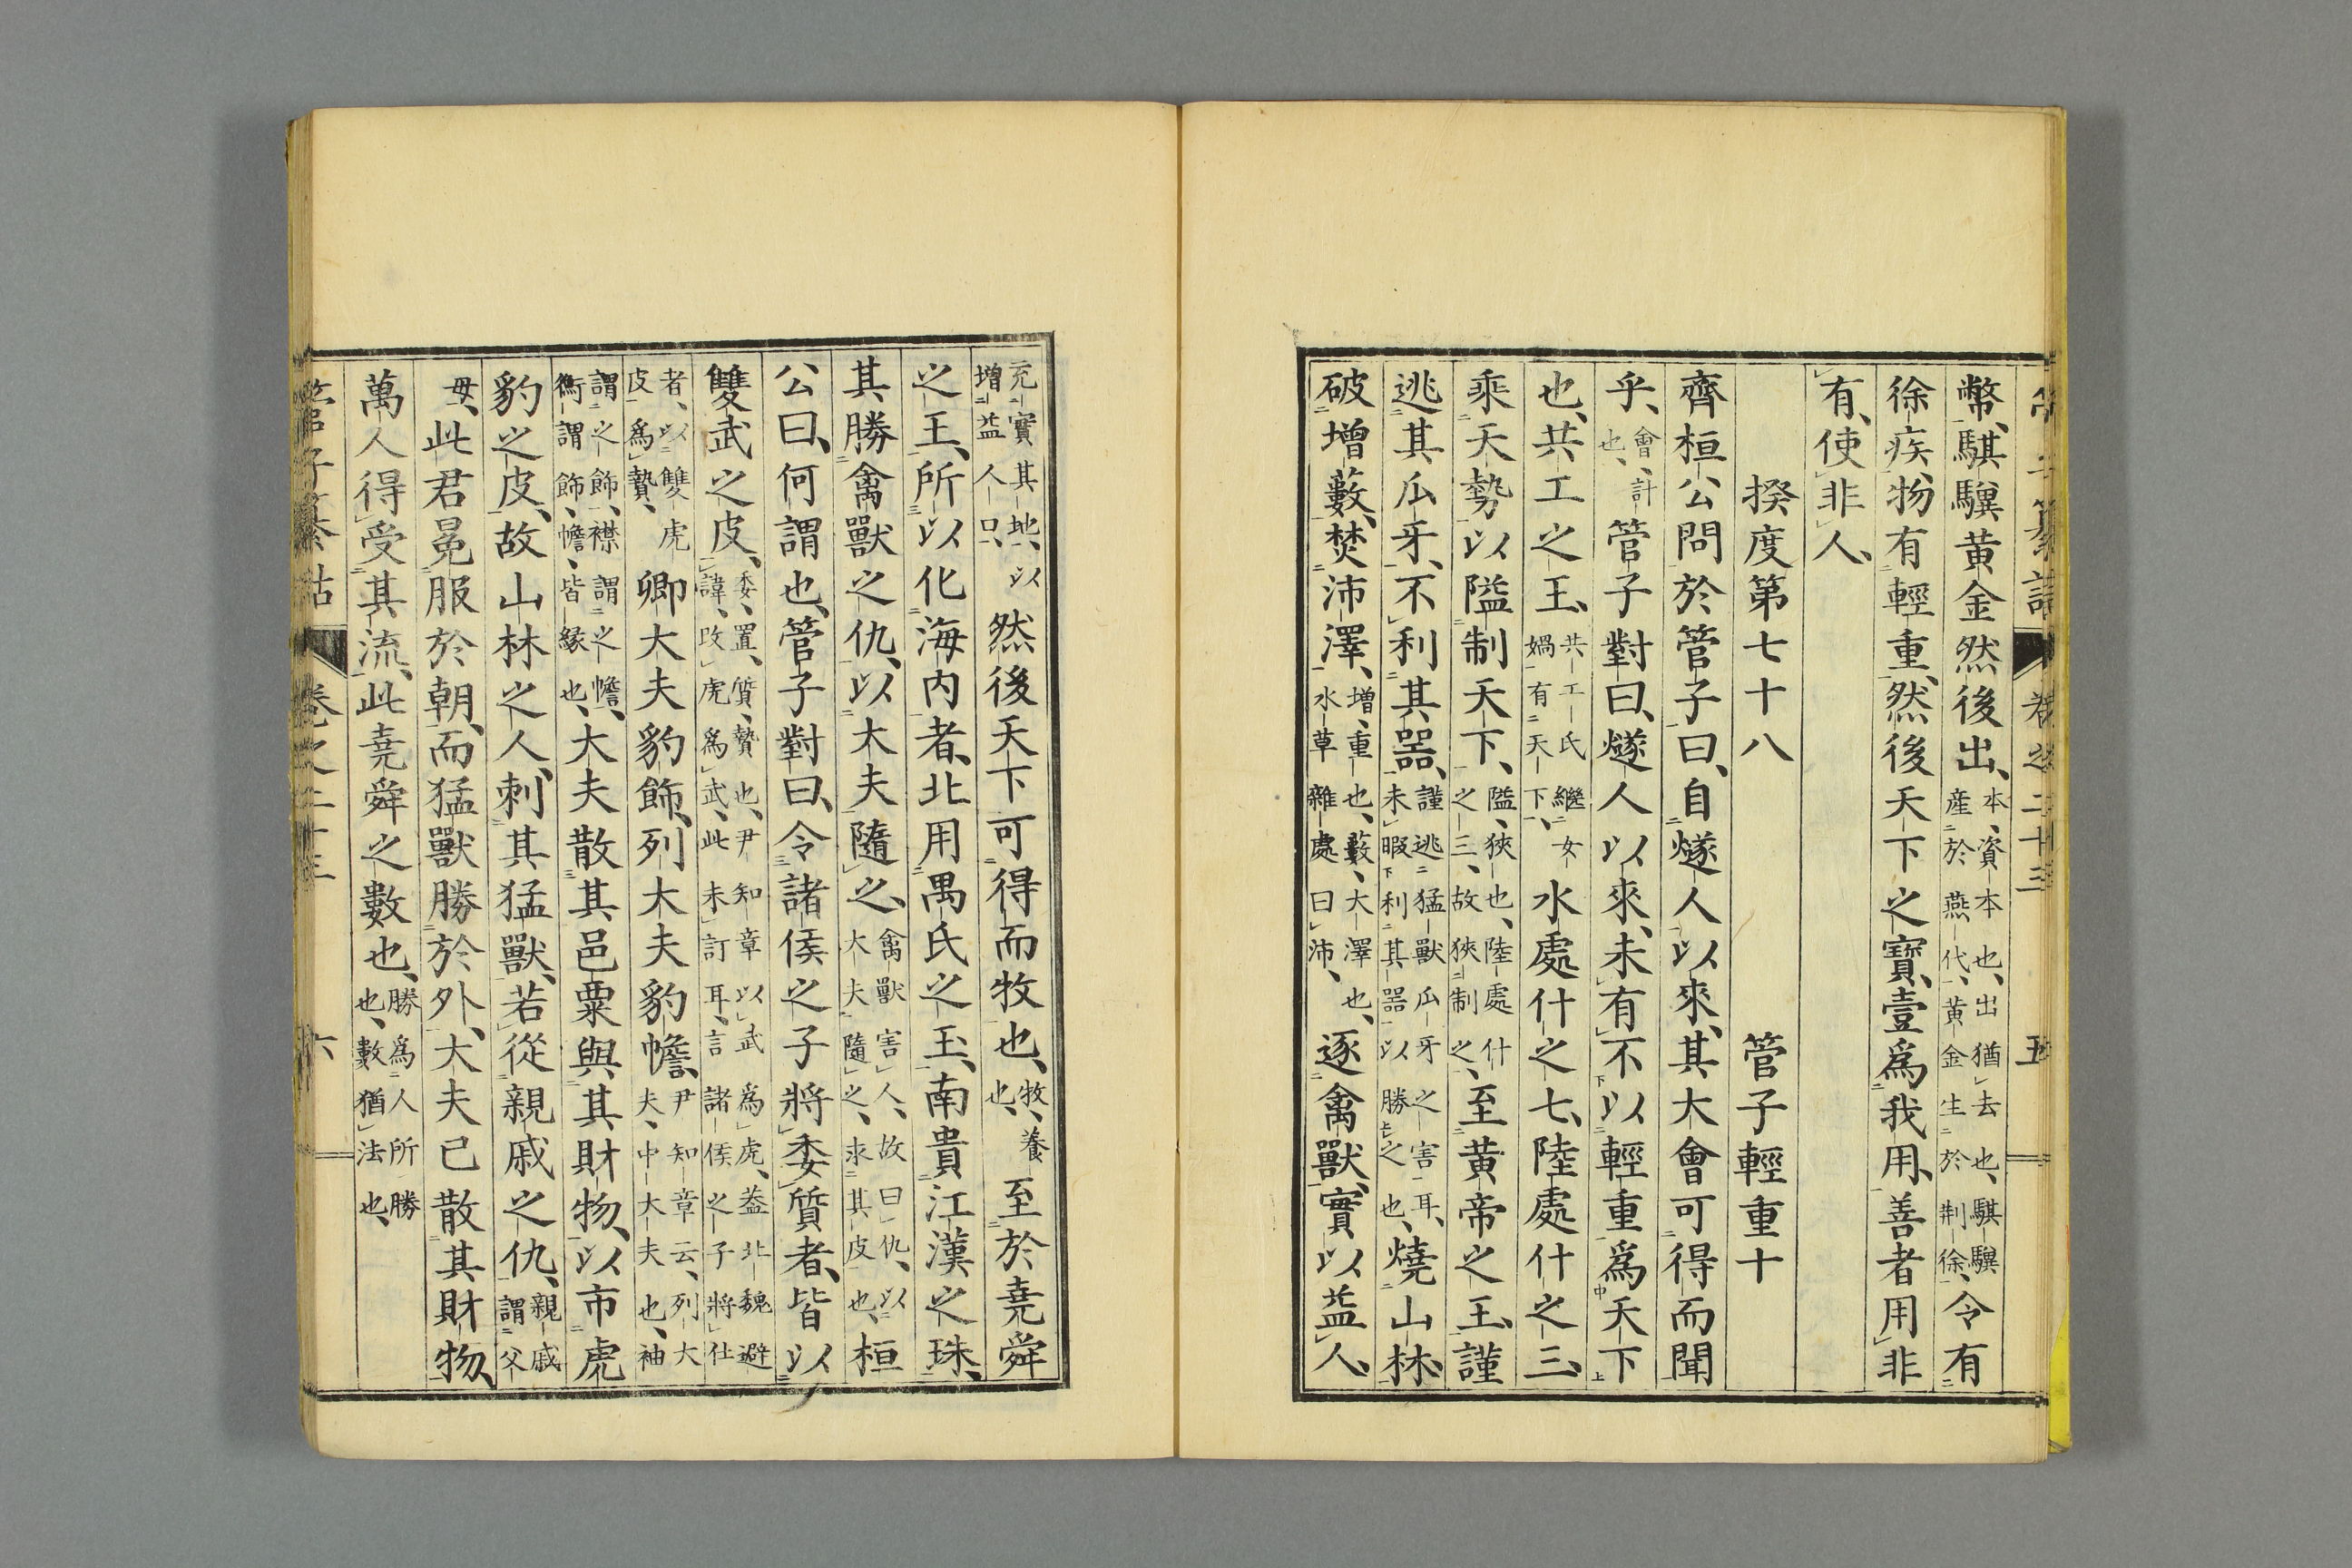 管子纂詁　卷之二十三　五
幣、騏驥黃金然後出、本、資本也、出猶去也、騏驥產於燕代、黃金生於荆徐、令有
徐疾、物有輕重、然後天下之寶、壹爲我用、善者用非
有、使非人、
揆度第七十八　管子輕重十
齊桓公問於管子曰、自燧人以來、其大會可得而聞
乎、會、計也、管子對曰、燧人以來、未有不以輕重爲天下
也、共工之王、共工氏繼女媧有天下、水處什之七、陸處什之三、
乘天勢以隘制天下、隘、狹也、陸處什之三、故狹制之、至黃帝之王、謹
逃其瓜牙、不利其器、謹逃猛獸瓜牙之害耳、未暇利其器以勝之也、燒山林、
破增藪、焚沛澤、增、重也、藪、大澤也、水草雜處曰沛、逐禽獸、實以益人、
充實其地、以增益人口、然後天下可得而牧也、牧、養也、至於堯舜
之王、所以化海内者、北用禺氏之玉、南貴江漢之珠、
其勝禽獸之仇、以大夫隨之、禽獸害人、故曰仇、以大夫隨之、求其皮也、桓
公曰、何謂也、管子對曰、令諸侯之子將委質者、皆以
雙武之皮、委、置、質、贄也、尹知章以武爲虎、葢北魏避諱、改虎爲武、此未訂耳、言諸侯之子將仕
者、以雙虎皮爲贄、卿大夫豹飾、列大夫豹幨、尹知章云、列大夫、中大夫也、袖
謂之飾、襟謂之幨、衡謂飾、幨、皆緣也、大夫散其邑粟與其財物、以市虎
豹之皮、故山林之人、刺其猛獸、若從親戚之仇、親戚謂父
母、此君冕服於朝、而猛獸勝於外、大夫已散其財物、
萬人得受其流、此堯舜之數也、勝爲人所勝也、數猶法也、
管子纂詁　卷之二十三　六